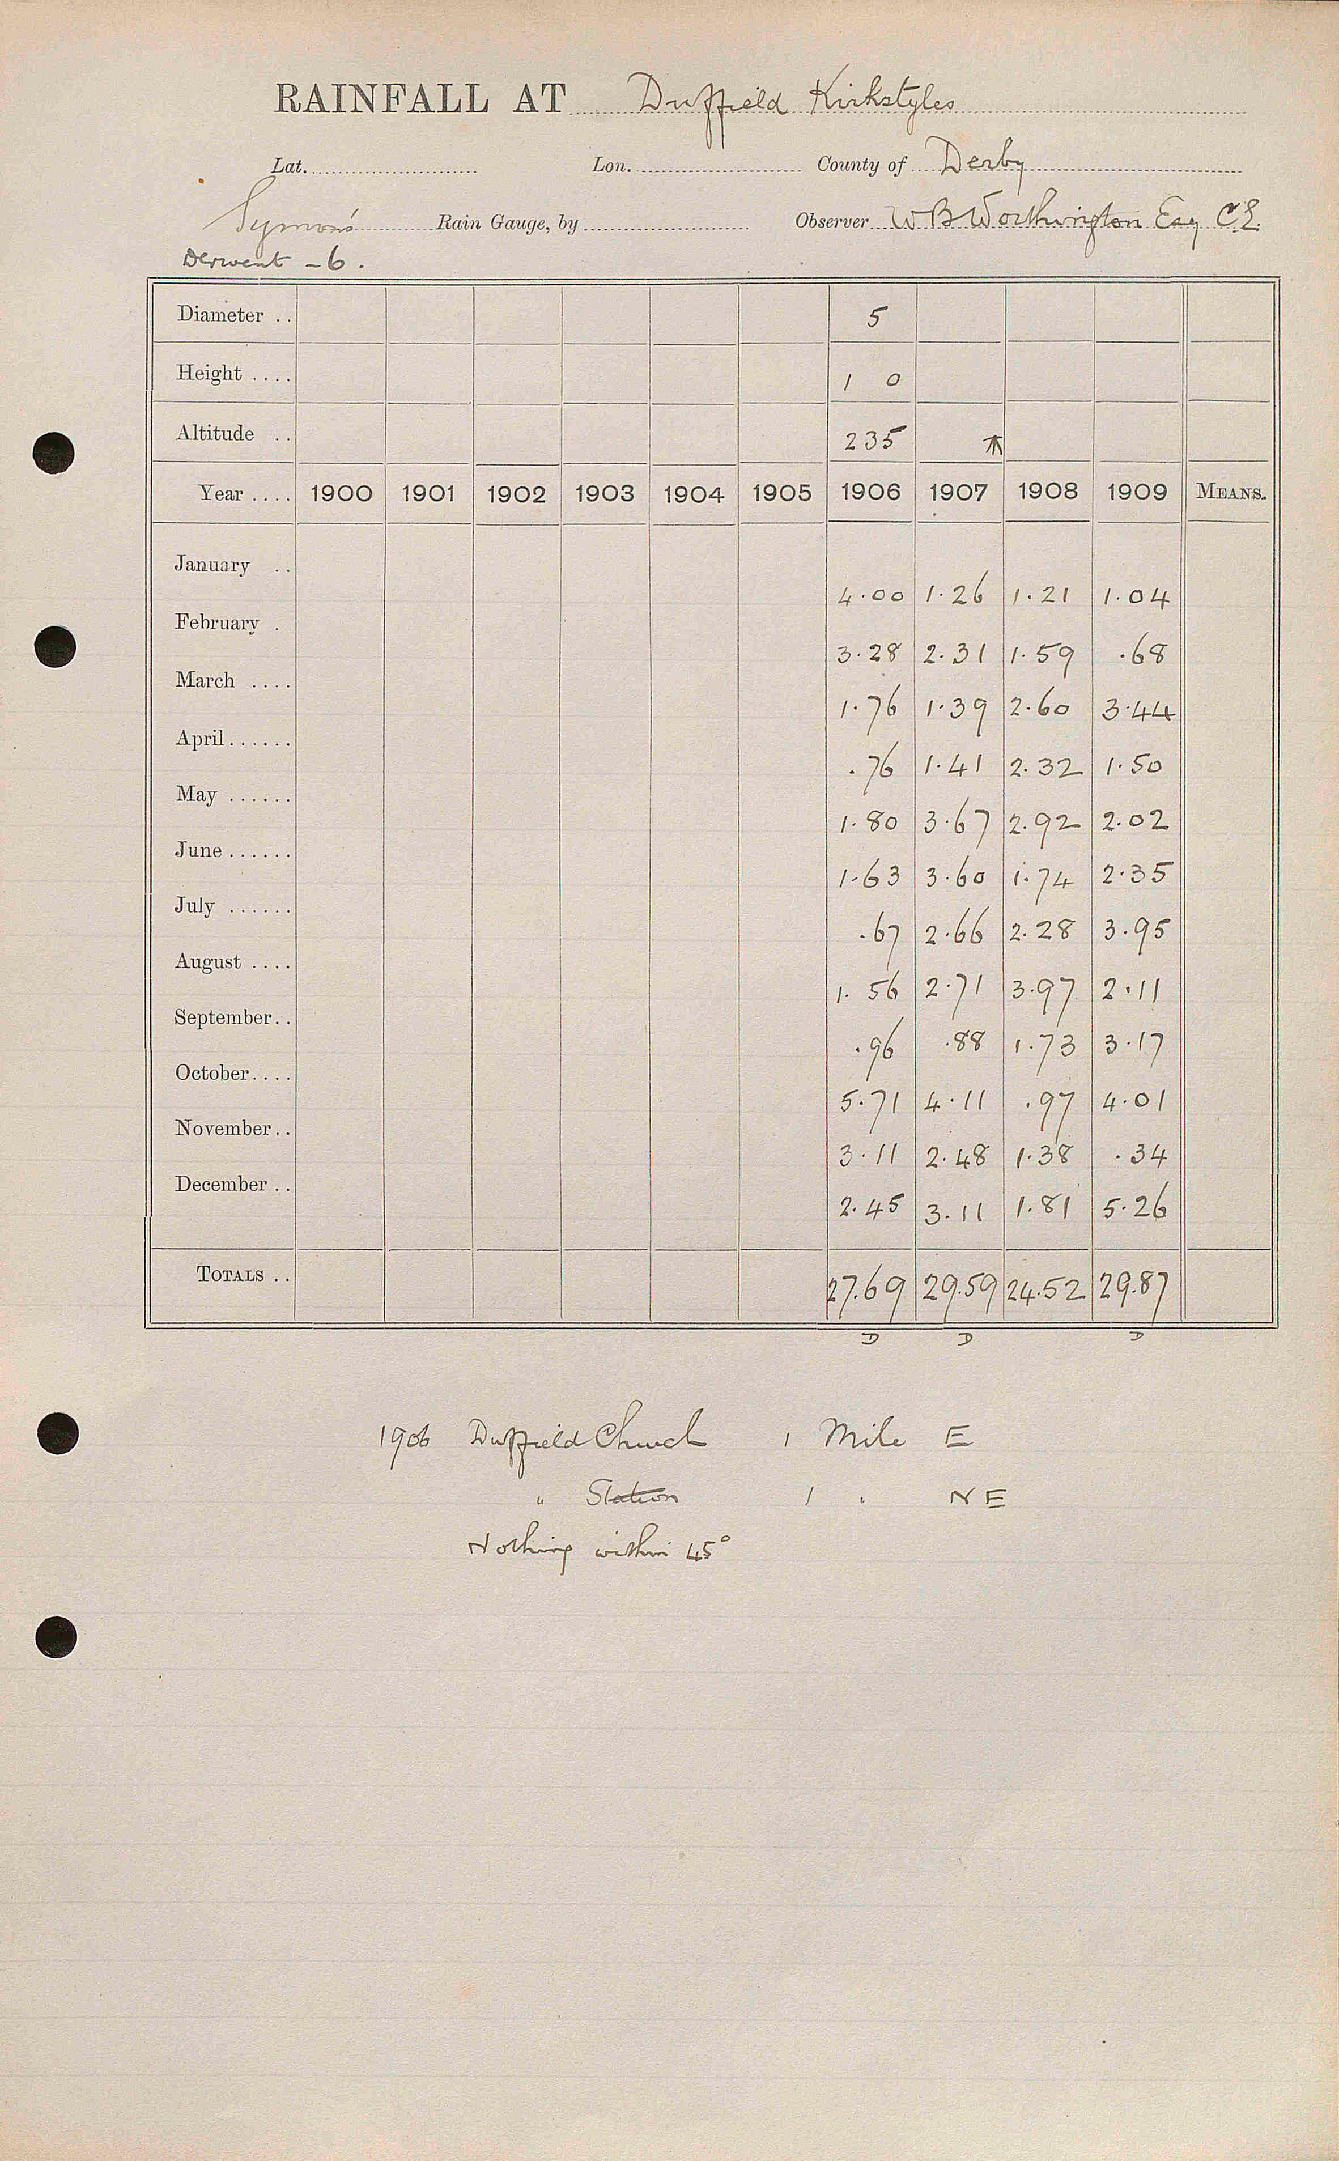 RAINFALL AT Duffield Kirkstyles
Lat. Lon. County of Derby
Symon's Rain Gauge, by Observer W B Worthington Esq C.E.
Derwent - 6.
Diameter .. 5
Height .... 1 0
Altitude .. 235
Year .... 1900 1901 1902 1903 1904 1905 1906 1907 1908 1909 MEANS.
January .. 4.00 1.26 1.21 1.04
February . 3.28 2.31 1.59 .68
March .... 1.76 1.39 2.60 3.44
April...... .76 1.41 2.32 1.50
May ...... 1.80 3.67 2.92 2.02
June...... 1.63 3.60 1.74 2.35
July ...... .67 2.66 2.28 3.95
August .... 1.56 2.71 3.97 2.11
September.. .96 .88 1.73 3.17
October.... 5.71 4.11 .97 4.01
November.. 3.11 2.48 1.38 .34
December .. 2.45 3.11 1.81 5.26
TOTALS .. 27.69 29.59 24.52 29.87
D D D
1906 Duffield Church 1 Mile E
" Station 1 " NE
Nothing within 45°